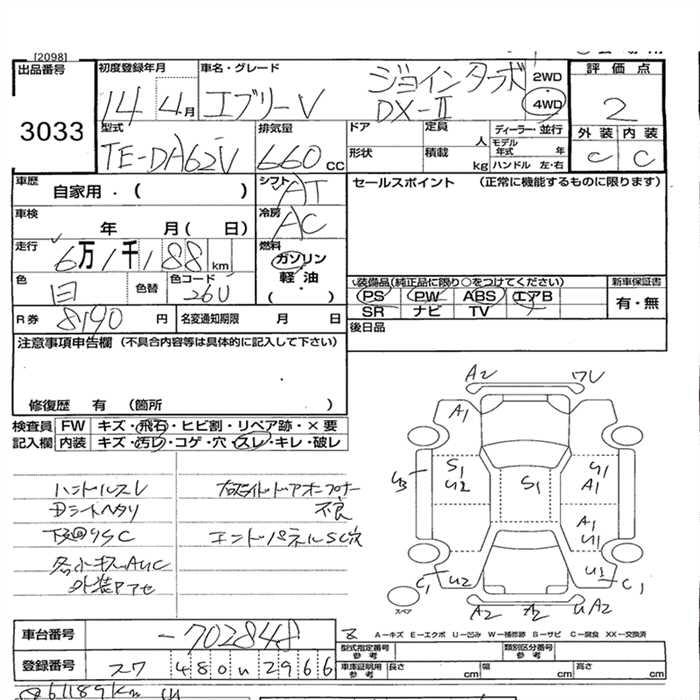 [2098]
出品番号
3033
初度登録年月
14 4月
車名・グレード
エブリーV
ジョインターボ
DX-II
2WD
4WD
評価点
2
外装 内装
C C
型式
TE-DA62V
排気量
660 cc
ドア
形状
定員
人
積載
kg
ディーラー・並行
モデル年式 年
ハンドル 左・右
車歴
自家用・( )
シフト
AT
セールスポイント (正常に機能するものに限ります)
車検
年 月( 日)
冷房
AC
走行
6万1千188km
燃料
ガソリン
軽油
( ・ )
色
白
色替
色コード
26U
装備品(純正品に限り○をつけてください)
PS PW ABS エアB
SR ナビ TV
新車保証書
有・無
R券
8190円
名変通知期限 月 日
後日品
注意事項申告欄 (不具合内容等は具体的に記入して下さい)
修復歴 有 (箇所 )
検査員記入欄
FW キズ・飛石・ヒビ割・リペア跡・×要
内装 キズ・汚レ・コゲ・穴・スレ・キレ・破レ
ハンドルスレ
Dシートヘタリ
下廻りSC
各小キズAUC
外装アセ
右スライドドアオープナー
不良
エンドパネルSC穴
A2 ワレ
A1
U3
S1
U2
S1
U1
A1
A1
U1
C1
U2
U1
C1
スペア
A2
U A2
A-キズ E-エクボ U-凹み W-補修跡 S-サビ C-腐食 XX-交換済
車台番号
-702848
登録番号
480 U 2966
型式指定番号参考
類別区分番号参考
車庫証明用参考
長さ cm
幅 cm
高さ cm
61189Km